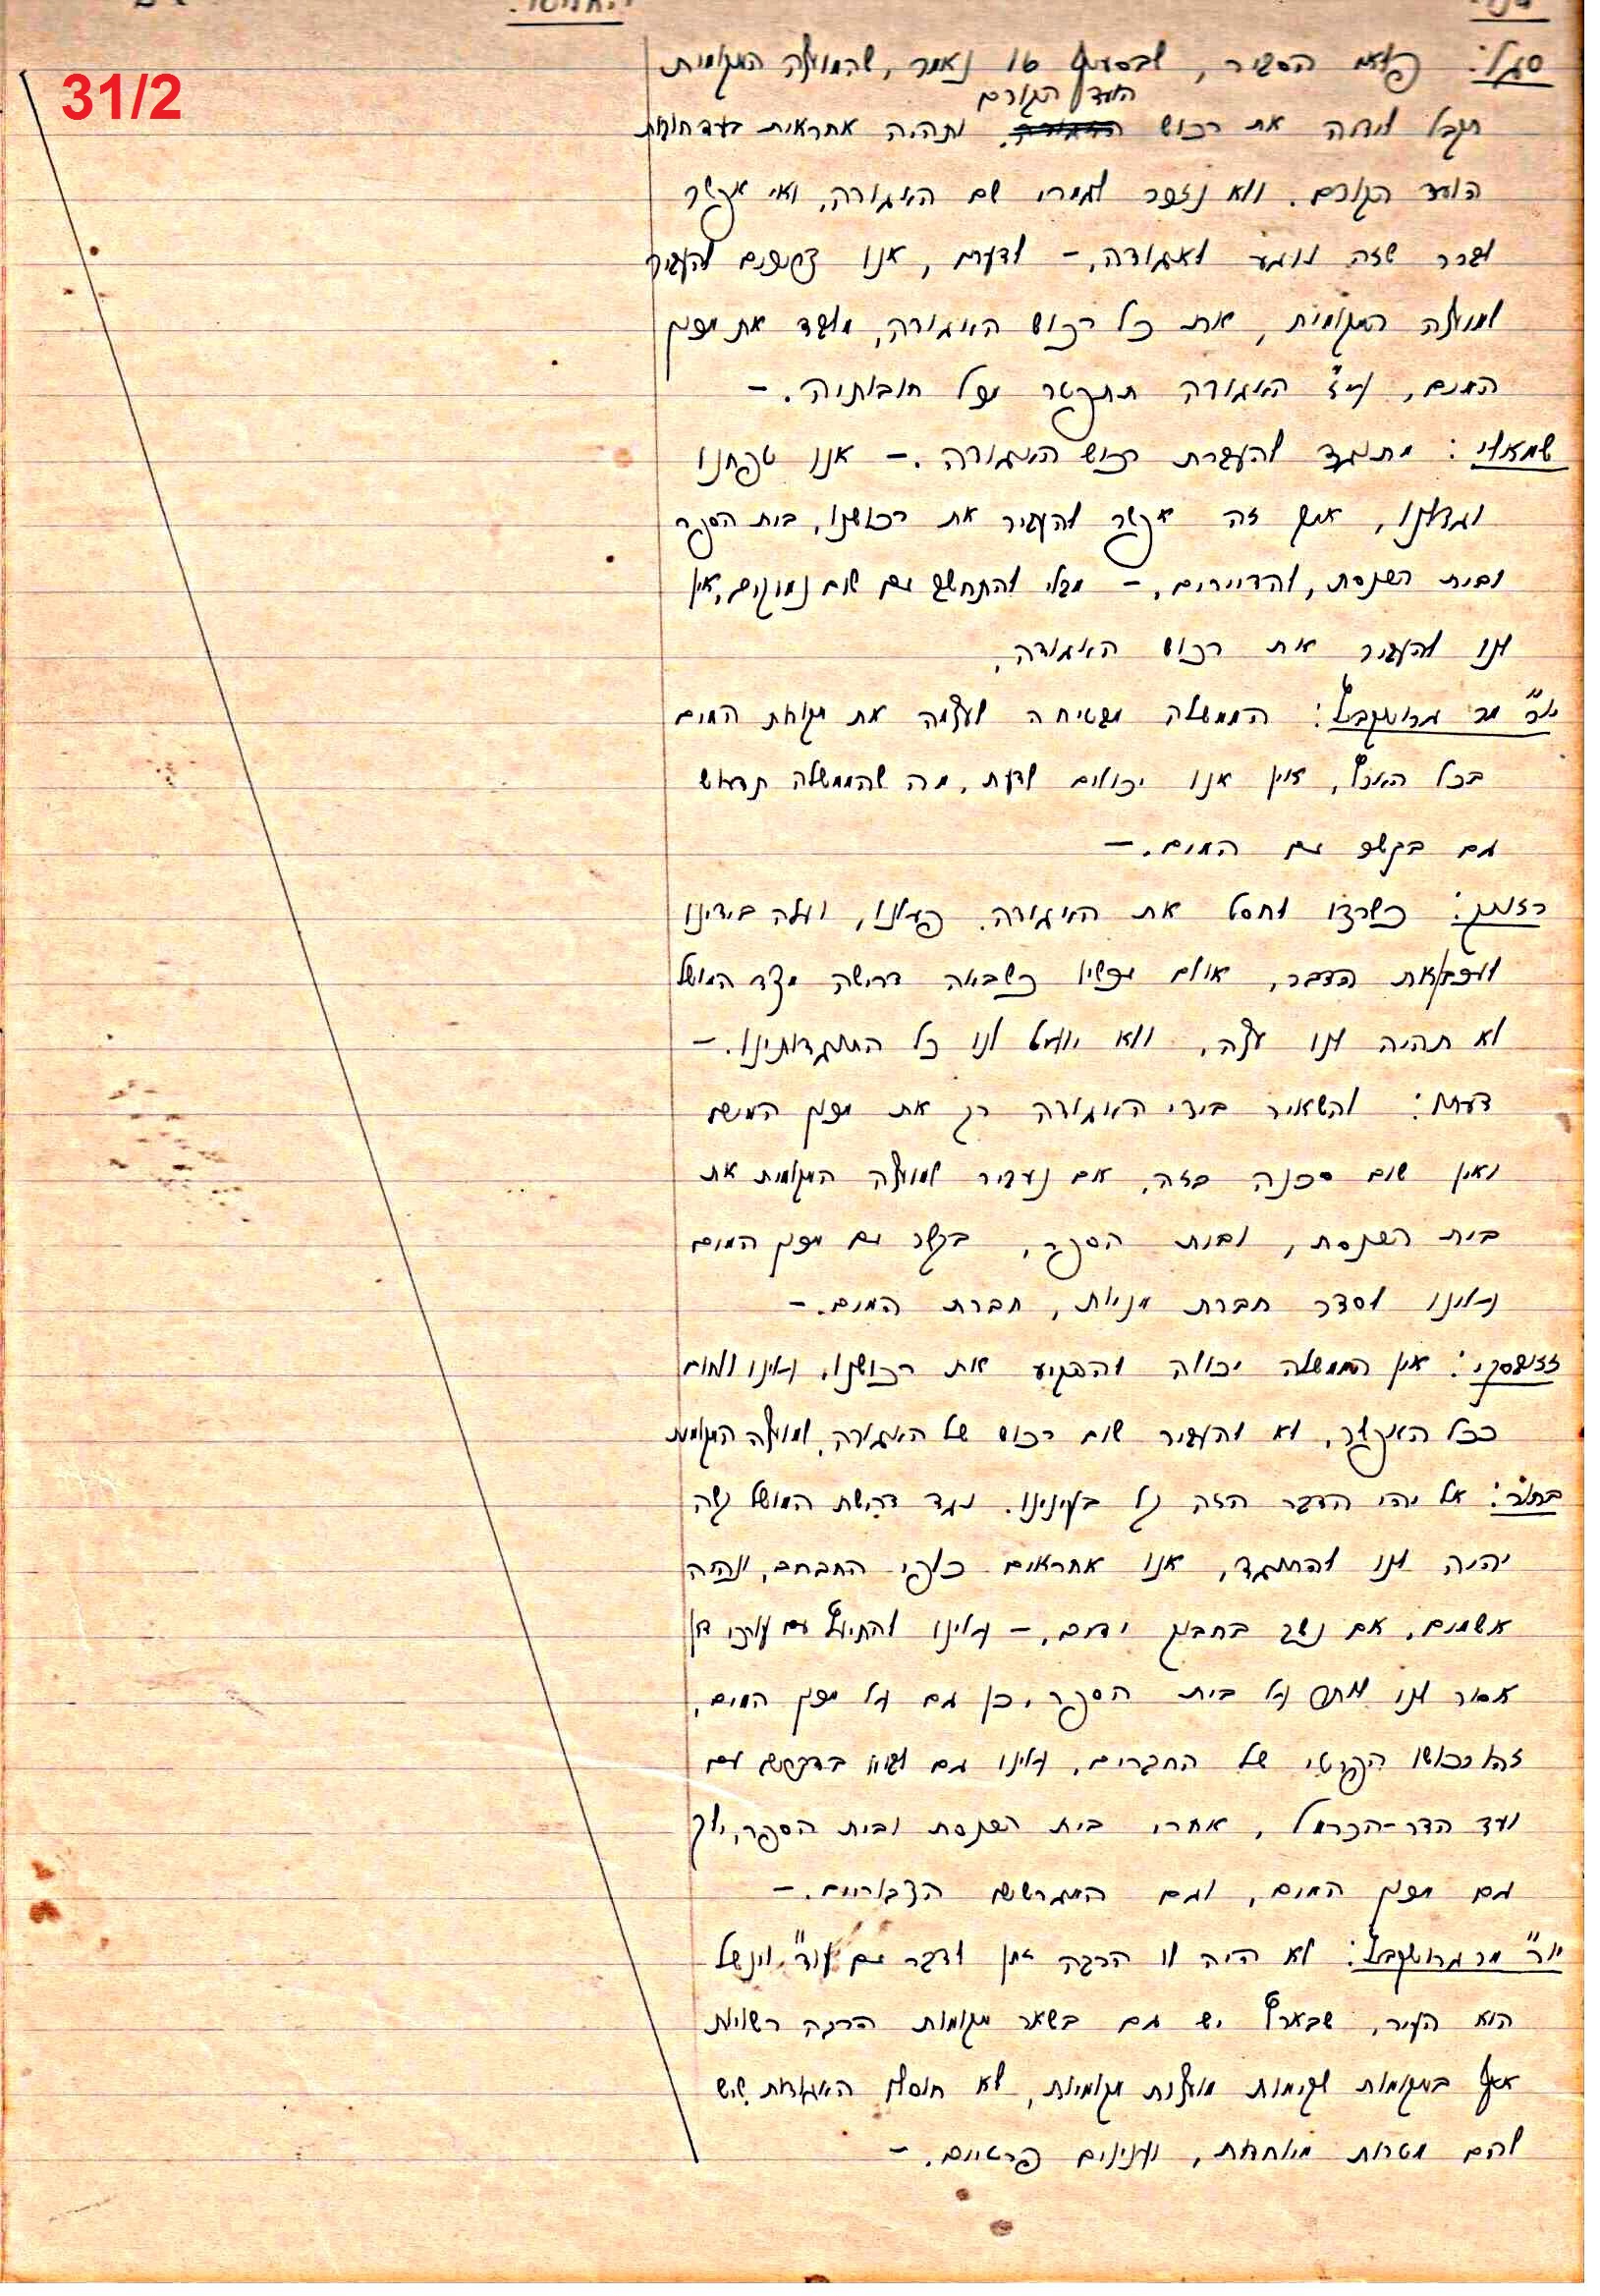 31/2
סגל: הסביר, שבסעיף 16 נאמר, שהמועצה המקומית
הועד הקודם
תקבל לידה את רכוש ותהיה אחראית בעד חובות
הועד הקודם. ולא נזכר לגמרי שם האגודה, ואי אפשר
לברר שזה נוגע לאגודה, – לדעתו, אנו צריכים להעביר
למועצה המקומית, את כל רכוש האגודה, מלבד את מפעל
המים, האגודה תתקשר חובותיה. –
שמאלי: מתנגד להעברת רכוש האגודה. – אנו טפחנו
וגדלנו, איך זה אפשר להעביר את רכושנו, בית הספר
ובית הכנסת, לדיירים, – מבלי להתחשב עם שום נמוקים, אין
לנו להעביר את רכוש האגודה.
יו"ר מר גרוסקבלד: הממשלה מבטיחה לעצמה את מקורות המים
בכל הארץ, ואין אנו יכולים לדעת, מה שהממשלה תדרוש
גם בקשר עם המים. –
רזניק: כשרצו לחסל את האגודה, פעלנו, ועלה בידינו
הדבר, אולם עכשיו כשבאה דרישה מצד המושל
לא תהיה לנו עצה, ולא יועיל לנו כל התנגדותינו. –
דעתו: להשאיר בידי האגודה רק את מפעל המים
ואין שום סכנה בזה, אם נעביר למועצה המקומית את
בית הכנסת, ובית הספר, בקשר עם מפעל המים
עלינו לסדר חברת מניות, חברת המים. –
אין הממשלה יכולה להפקיע את רכושנו, עלינו ללחום
ככל האפשר, לא להעביר שום רכוש של האגודה, למועצה המקומית
אל יהי הדבר הזה קל בעינינו. נגד דרישת המושל קשה
יהיה לנו להתנגד, אנו אחראים כלפי החברים, ונהיה
אשמים, אם נשב בחבוק ידים, – עלינו להתיעץ עם עורכי דין
אסור לנו לותר על בית הספר, כן גם על מפעל המים,
זהו רכושו הפרטי של החברים, עלינו גם לבוא בדברים עם
ועד הדר-הכרמל, אחרי בית הכנסת ובית הספר, ילך
גם מפעל המים, וגם המגרשים הצבוריים. –
יו"ר מר גרוסקבלד: לא היה לו הרבה זמן לדבר עם עו"ד וינשל
הוא העיר, שבארץ יש גם בשאר מקומות הרבה רשויות
אף במקומות שקימות מועצות מקומיות, לא חוסלו האגודות שיש
להם מטרות מיוחדות, וענינים פרטיים. –